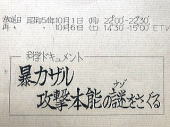 放送 昭和54年10月1日(月) 22:00-22:30
再 10月6日(土) 14:30-15:00 ETV
科学ドキュメント
暴力ザル
攻撃本能の謎をさぐる
なぞ